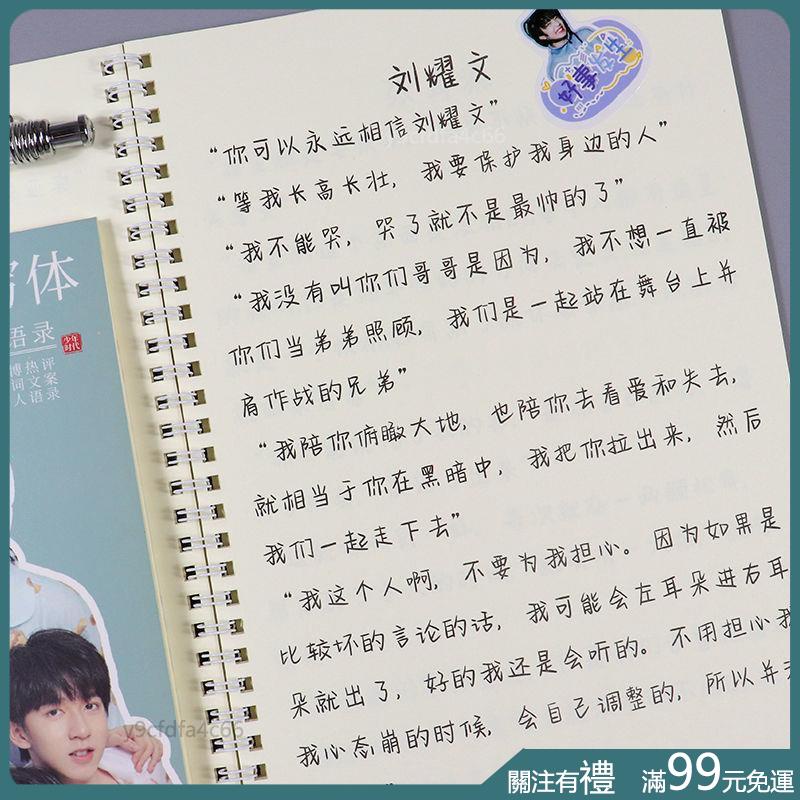 刘耀文
好事发生
“你可以永远相信刘耀文”
“等我长高长壮，我要保护我身边的人”
“我不能哭，哭了就不是最帅的了”
“我没有叫你们哥哥是因为，我不想一直被
你们当弟弟照顾，我们是一起站在舞台上并
肩作战的兄弟”
“我陪你俯瞰大地，也陪你去看爱和失去，
就相当于你在黑暗中，我把你拉出来，然后
我们一起走下去”
“我这个人啊，不要为我担心。因为如果是
比较坏的言论的话，我可能会左耳朵进右耳
朵就出了，好的我还是会听的。不用担心我
我心态崩的时候，会自己调整的，所以并
字体
语录
少年时代
博热评
词文案
人语录
y9cfdfa4c66
y9cfdfa4c66
關注有禮 滿99元免運